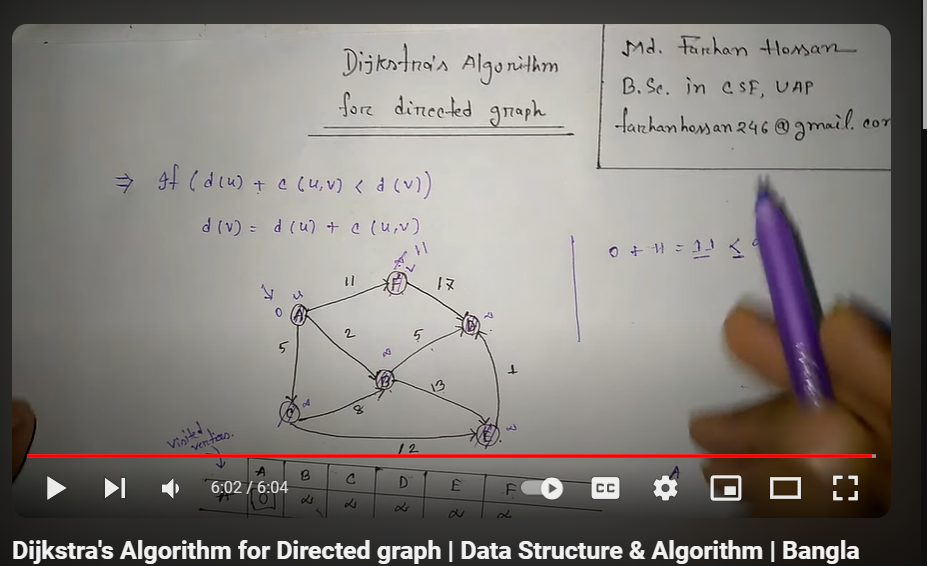 Dijkstra's Algorithm
for directed graph
Md. Farhan Hossan
B.Sc. in CSE, UAP
farhanhossan246@gmail.com
⇒ If (d(u) + c(u,v) < d(v))
d(v) = d(u) + c(u,v)
0 + 11 = 11 <
11
11 F 17
u
0 A D ∞
2 5
5 ∞
B 13 1
C ∞ 8
E ∞
12
visited
A B C D E F
A 0 ∞ ∞ ∞ ∞ ∞
A
6:02 / 6:04
CC
Dijkstra's Algorithm for Directed graph | Data Structure & Algorithm | Bangla